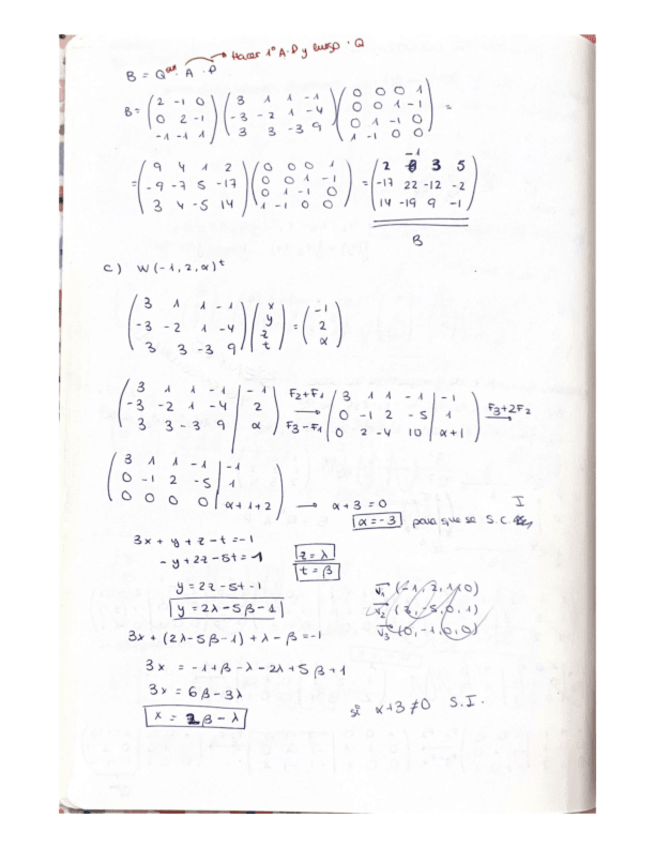 Hacer 1º A·P y luego · Q
B = Q · A · P
B = (2 -1 0 / 0 2 -1 / -1 -1 1) (3 1 1 -1 / -3 -2 1 -4 / 3 3 -3 9) (0 0 0 1 / 0 0 1 -1 / 0 1 -1 0 / 1 -1 0 0) =
= (9 4 1 2 / -9 -7 5 -17 / 3 4 -5 14) (0 0 0 1 / 0 0 1 -1 / 0 1 -1 0 / 1 -1 0 0) = (2 -1 3 5 / -17 22 -12 -2 / 14 -19 9 -1)
B
c) W (-1, 2, α)ᵗ
(3 1 1 -1 / -3 -2 1 -4 / 3 3 -3 9) (x / y / z / t) = (-1 / 2 / α)
(3 1 1 -1 | -1 / -3 -2 1 -4 | 2 / 3 3 -3 9 | α) F2+F1 → F3-F1 (3 1 1 -1 | -1 / 0 -1 2 -5 | 1 / 0 2 -4 10 | α+1) F3+2F2 →
(3 1 1 -1 | -1 / 0 -1 2 -5 | 1 / 0 0 0 0 | α+1+2) → α+3 = 0
α = -3 para que sea S.C. I
3x + y + z - t = -1
- y + 2z - 5t = 1
z = λ
t = β
y = 2z - 5t - 1
y = 2λ - 5β - 1
v₁ (-1, 2, 1, 0)
v₂ (2, -5, 0, 1)
v₃ (0, -1, 0, 0)
3x + (2λ - 5β - 1) + λ - β = -1
3x = -1 + β - λ - 2λ + 5β + 1
3x = 6β - 3λ
x = 2β - λ
si α+3 ≠ 0 S.I.